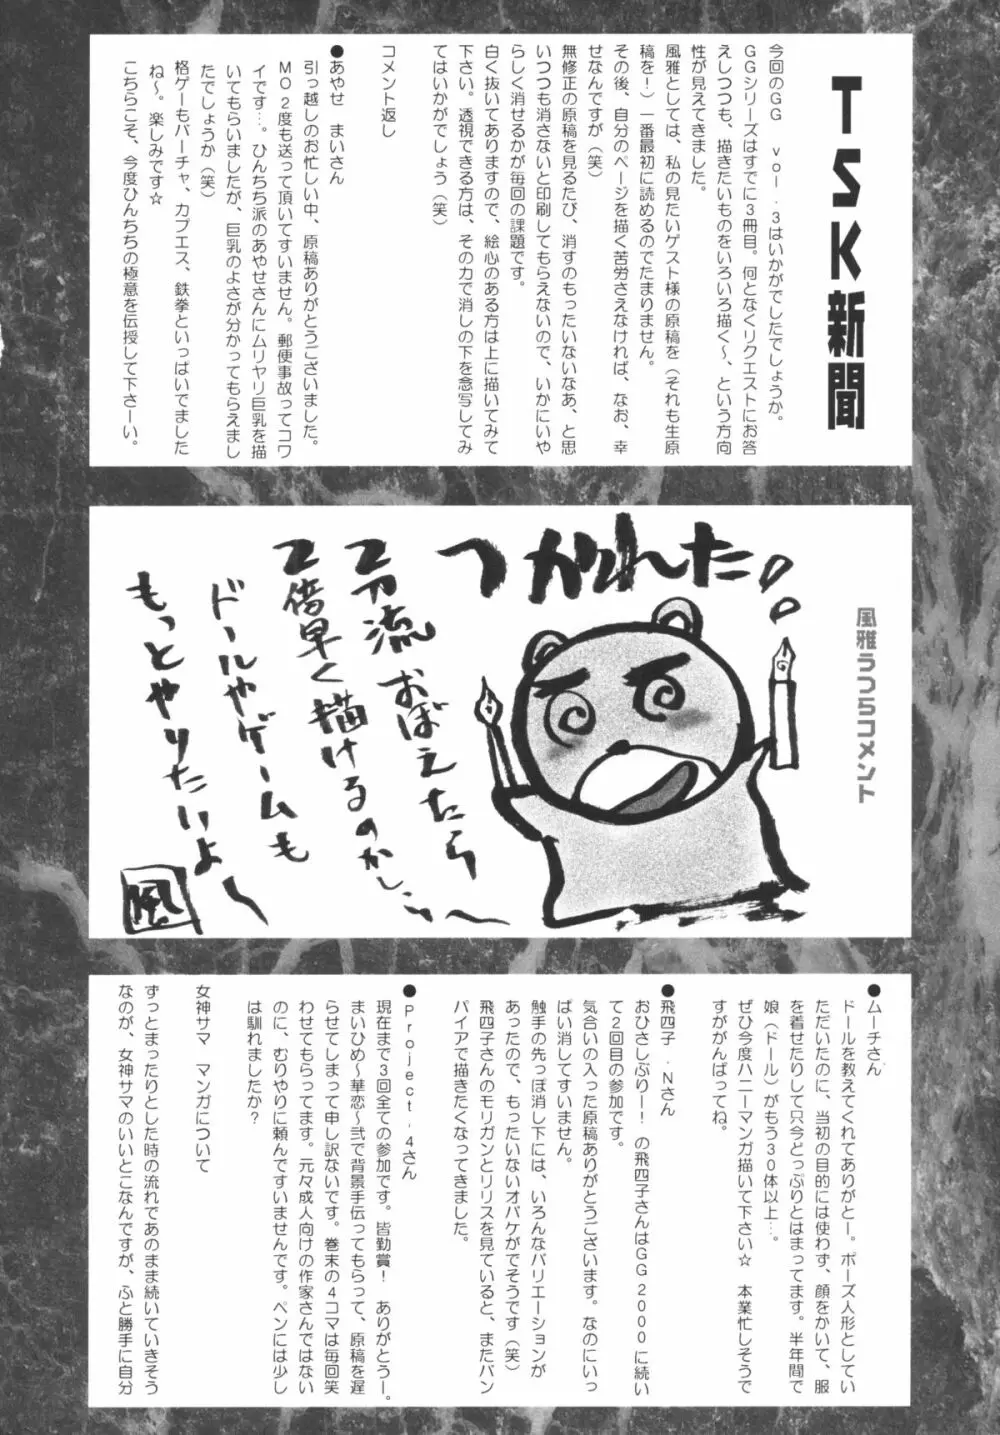 TSK新聞
今回のGG vol.3はいかがでしたでしょうか。
GGシリーズはすでに3冊目。何となくリクエストにお答
えしつつも、描きたいものをいろいろ描く～、という方向
性が見えてきました。
風雅としては、私の見たいゲスト様の原稿を(それも生原
稿を!)一番最初に読めるのでたまりません。
その後、自分のページを描く苦労さえなければ、なお、幸
せなんですが(笑)
無修正の原稿を見るたび、消すのもったいないなあ、と思
いつつも消さないと印刷してもらえないので、いかにいや
らしく消せるかが毎回の課題です。
白く抜いてありますので、絵心のある方は上に描いてみて
下さい。透視できる方は、その力で消しの下を念写してみ
てはいかがでしょう(笑)
コメント返し
●あやせ まいさん
引っ越しのお忙しい中、原稿ありがとうございました。
MO2度も送って頂いてすいません。郵便事故ってコワ
イです…。ひんちち派のあやせさんにムリヤリ巨乳を描
いてもらいましたが、巨乳のよさが分かってもらえまし
たでしょうか(笑)
格ゲーもバーチャ、カプエス、鉄拳といっぱいでました
ね～。楽しみです☆
こちらこそ、今度ひんちちの極意を伝授して下さーい。
風雅うつらコメント
つかれた!。
2刀流おぼえたら
2倍早く描けるのかしら～
ドールやゲームも
もっとやりたいよ～
風
●ムーチさん
ドールを教えてくれてありがとー。ポーズ人形としてい
ただいたのに、当初の目的には使わず、顔をかいて、服
を着せたりして只今どっぷりとはまってます。半年間で
娘(ドール)がもう30体以上…。
ぜひ今度ハニーマンガ描いて下さい☆ 本業忙しそうで
すががんばってね。
●飛四子.Nさん
おひさしぶりー! の飛四子さんはGG2000に続い
て2回目の参加です。
気合いの入った原稿ありがとうございます。なのにいっ
ぱい消してすいません。
触手の先っぽ消し下には、いろんなバリエーションが
あったので、もったいないオバケがでそうです(笑)
飛四子さんのモリガンとリリスを見ていると、またバン
パイアで描きたくなってきました。
●Project.4さん
現在まで3回全ての参加です。皆勤賞! ありがとうー。
まいひめ～華恋～弐で背景手伝ってもらって、原稿を遅
らせてしまって申し訳ないです。巻末の4コマは毎回笑
わせてもらってます。元々成人向けの作家さんではない
のに、むりやりに頼んですいませんです。ペンには少し
は馴れましたか?
女神サマ マンガについて
ずっとまったりとした時の流れであのまま続いていきそう
なのが、女神サマのいいとこなんですが、ふと勝手に自分